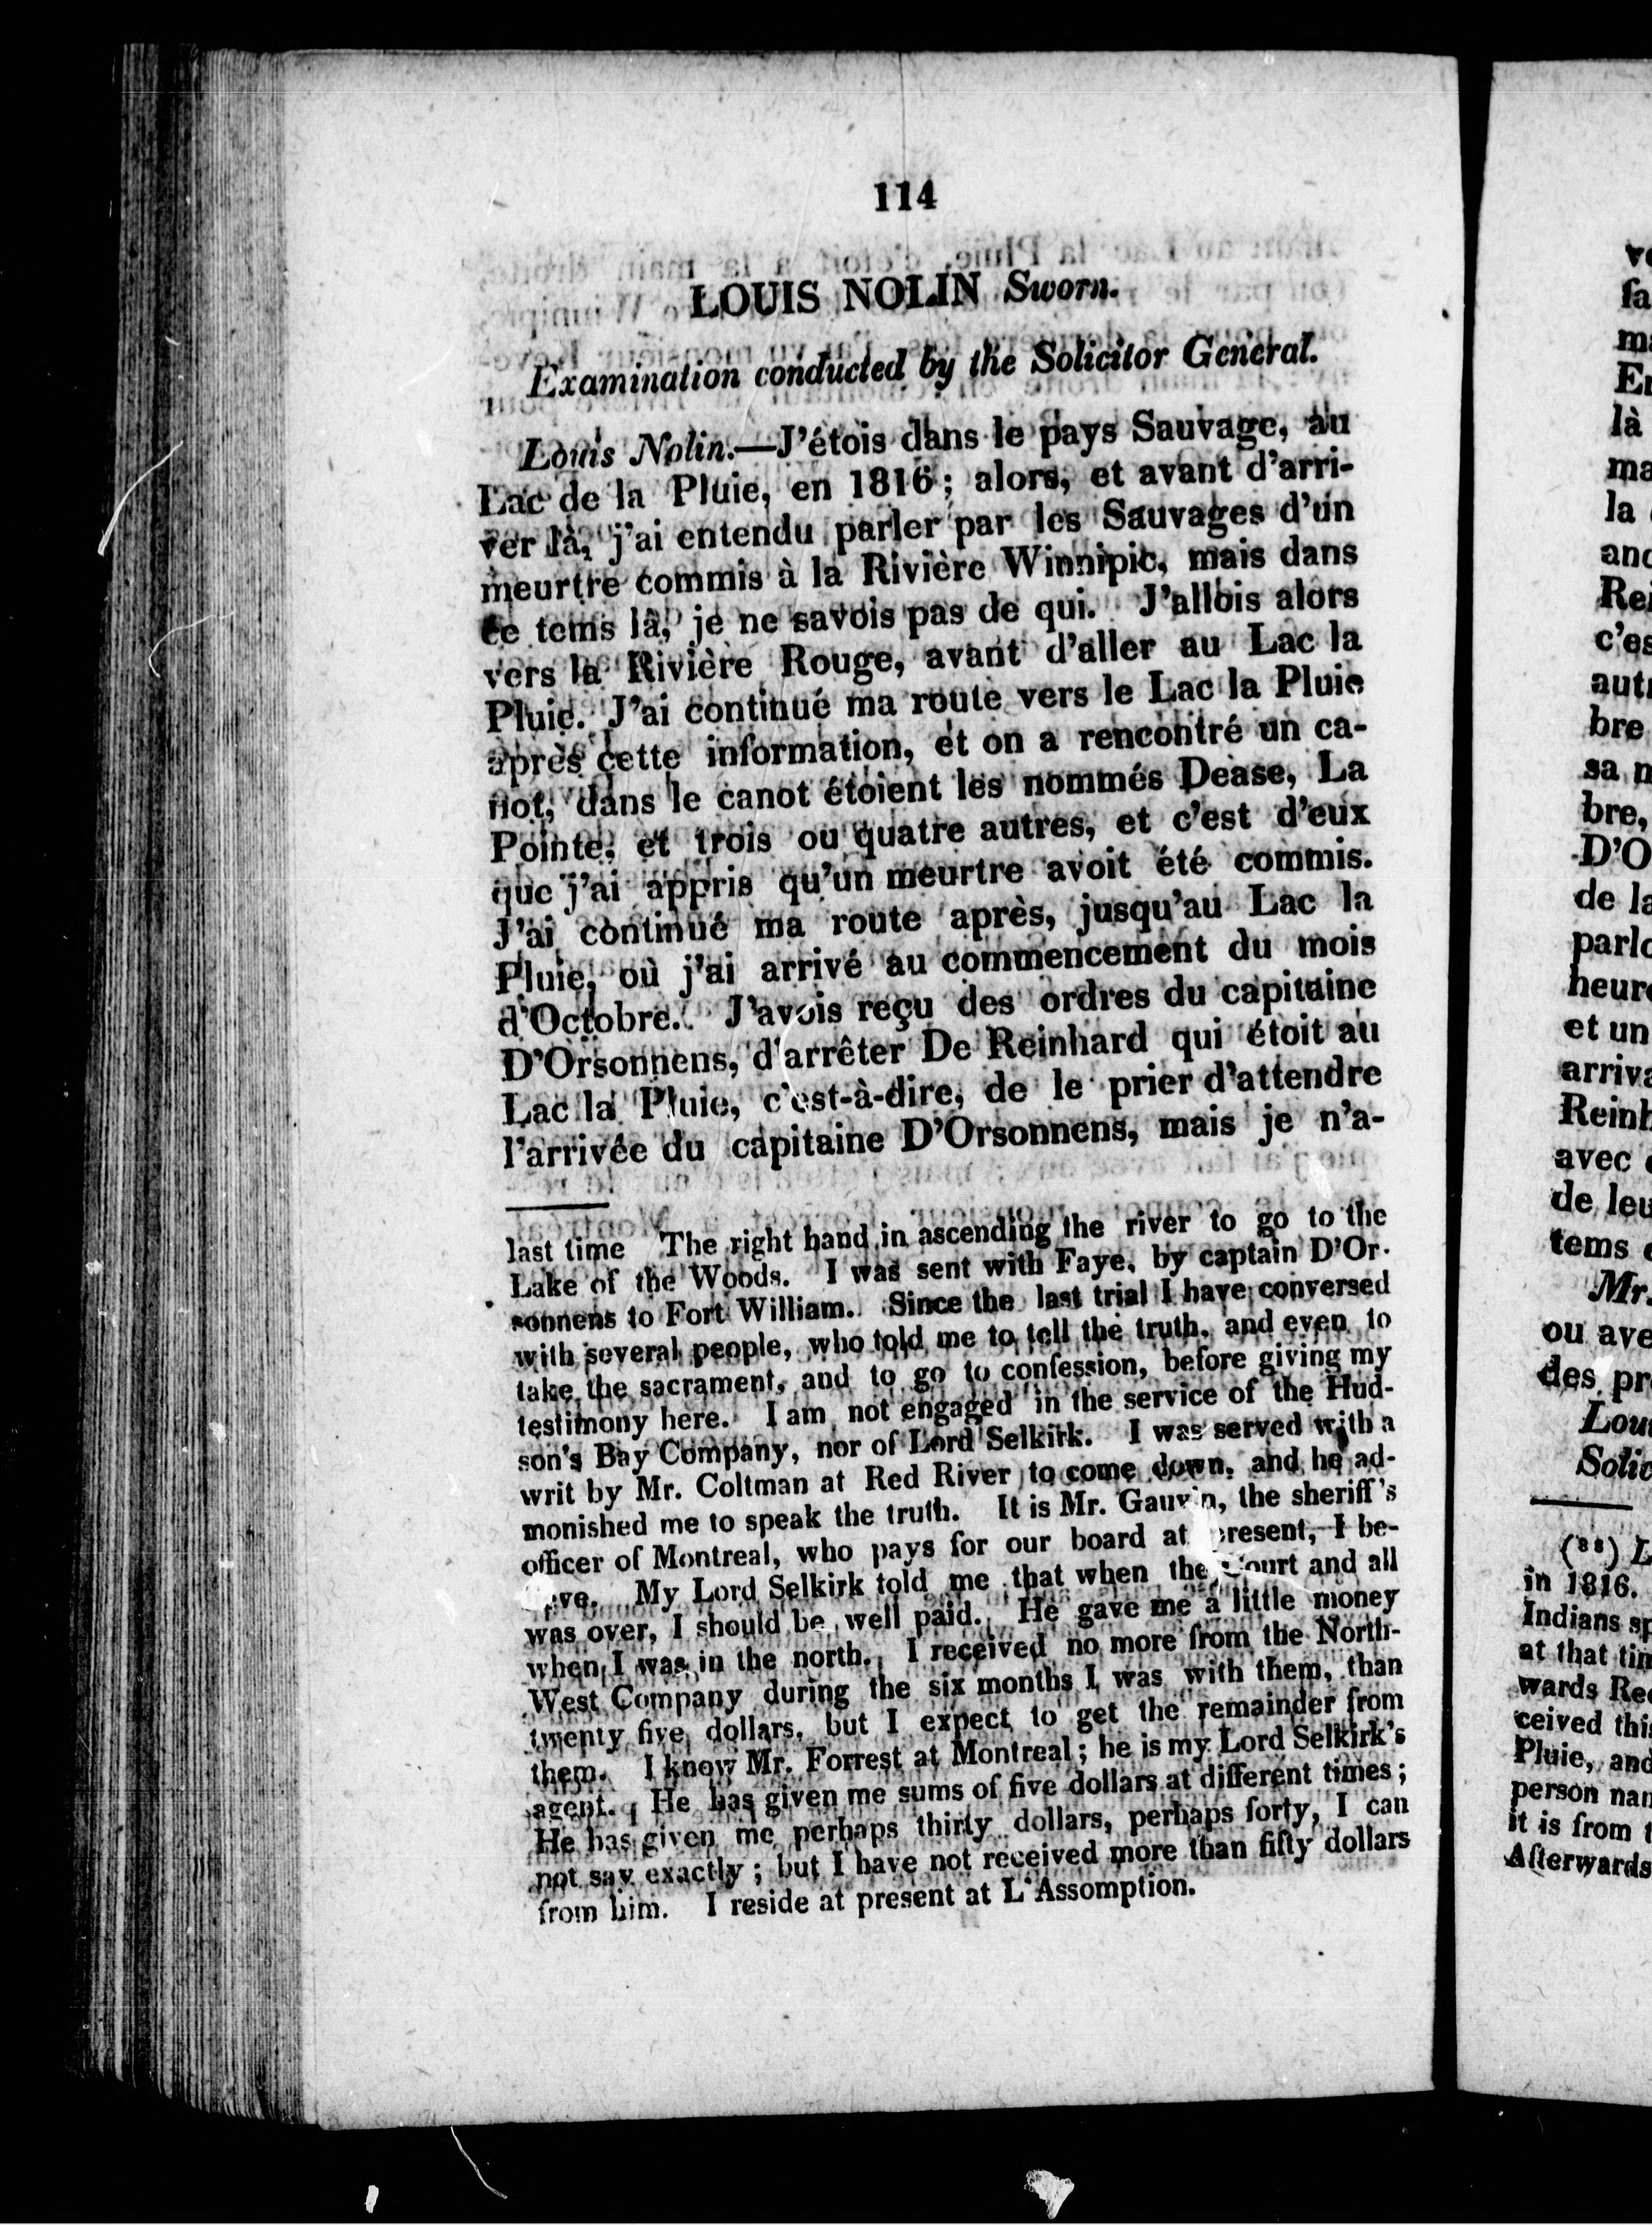 114
LOUIS NOLIN Sworn.
Examination conducted by the Solicitor General.
Louis Nolin.—J'étois dans le pays Sauvage, au
Lac de la Pluie, en 1816; alors, et avant d'arri-
ver là, j'ai entendu parler par les Sauvages d'un
meurtre commis à la Rivière Winnipic, mais dans
ce tems là, je ne savois pas de qui. J'allois alors
vers la Rivière Rouge, avant d'aller au Lac la
Pluie. J'ai continué ma route vers le Lac la Pluie
après cette information, et on a rencontré un ca-
not, dans le canot étoient les nommés Dease, La
Pointe, et trois ou quatre autres, et c'est d'eux
que j'ai appris qu'un meurtre avoit été commis.
J'ai continué ma route après, jusqu'au Lac la
Pluie, où j'ai arrivé au commencement du mois
d'Octobre. J'avois reçu des ordres du capitaine
D'Orsonnens, d'arrêter De Reinhard qui étoit au
Lac la Pluie, c'est-à-dire, de le prier d'attendre
l'arrivée du capitaine D'Orsonnens, mais je n'a-
last time The right hand in ascending the river to go to the
Lake of the Woods. I was sent with Faye, by captain D'Or-
sonnens to Fort William. Since the last trial I have conversed
with several people, who told me to tell the truth, and even to
take the sacrament, and to go to confession, before giving my
testimony here. I am not engaged in the service of the Hud-
son's Bay Company, nor of Lord Selkirk. I was served with a
writ by Mr. Coltman at Red River to come down, and he ad-
monished me to speak the truth. It is Mr. Gauvin, the sheriff's
officer of Montreal, who pays for our board at present, I be-
ve. My Lord Selkirk told me that when the Court and all
was over, I should be well paid. He gave me a little money
when I was in the north. I received no more from the North-
West Company during the six months I was with them, than
twenty five dollars, but I expect to get the remainder from
them. I know Mr. Forrest at Montreal; he is my Lord Selkirk's
agent. He has given me sums of five dollars at different times;
He has given me perhaps thirty dollars, perhaps forty, I can
not say exactly; but I have not received more than fifty dollars
from him. I reside at present at L'Assomption.
ve
fa
ma
En
là
ma
la
and
Rei
c'es
autr
bre
sa m
bre,
D'O
de la
parlo
heure
et un
arriva
Reinh
avec
de leu
tems
Mr.
ou ave
des pr
Lou
Solic
(88) L
in 1816.
Indians sp
at that tim
wards Re
ceived this
Pluie, and
person nam
it is from t
Afterwards